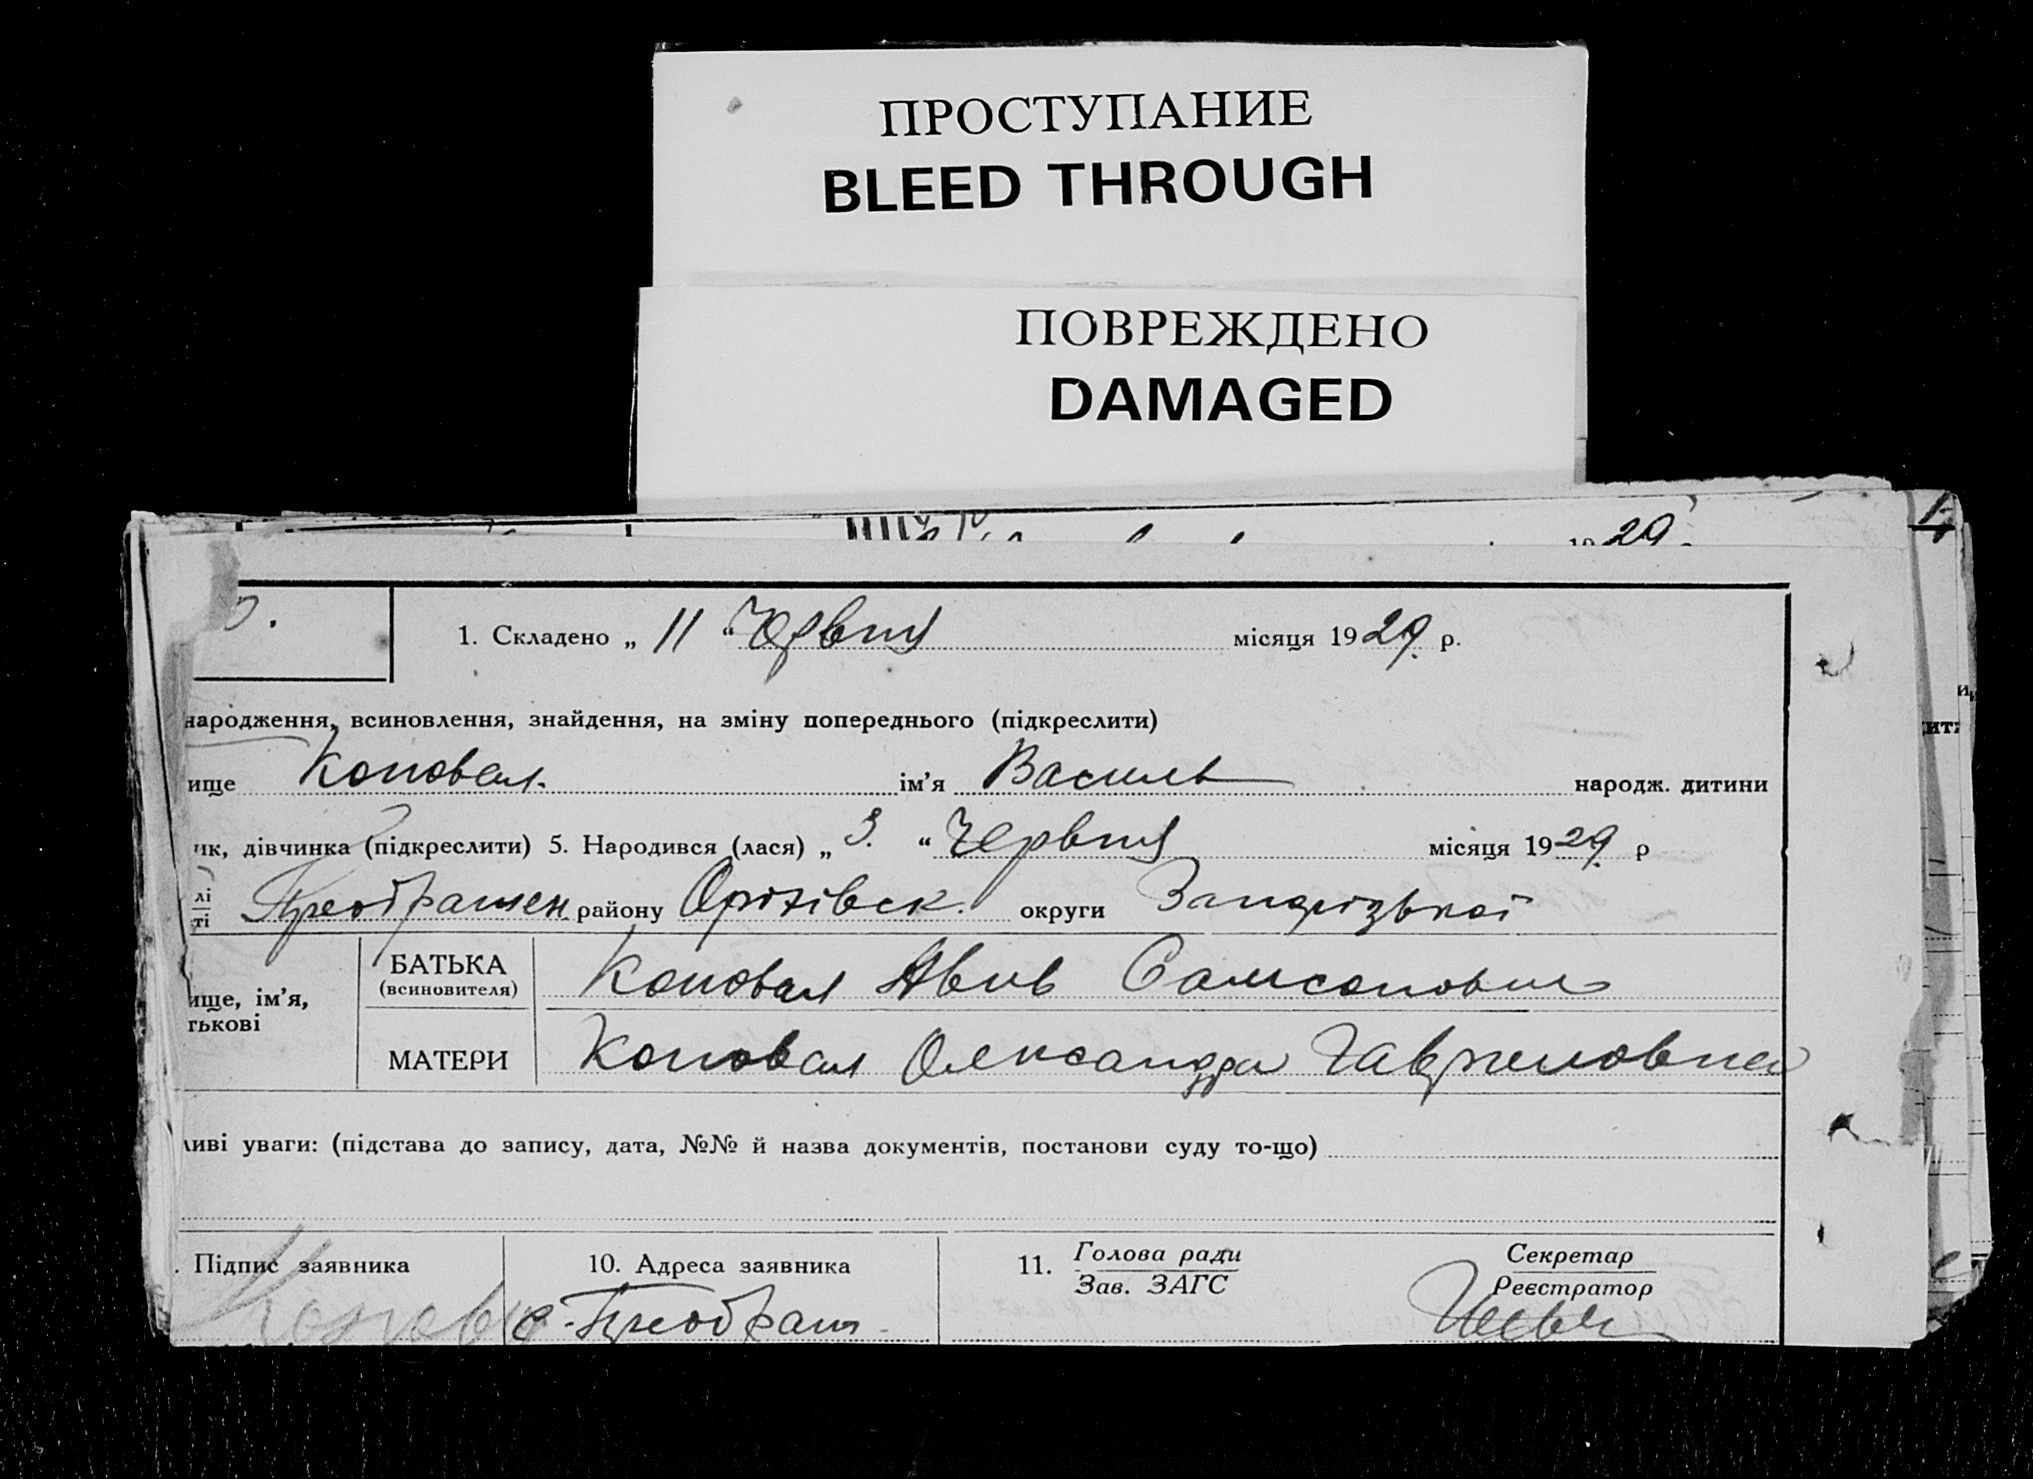 ПРОСТУПАНИЕ
BLEED THROUGH
ПОВРЕЖДЕНО
DAMAGED
29
1. Складено „ 11 “ Червня місяця 1929 р.
народження, всиновлення, знайдення, на зміну попереднього (підкреслити)
ище Коновал. ім’я Василь народж. дитини
ик, дівчинка (підкреслити) 5. Народився (лася) „ 3. “ Червня місяця 1929 р
лі
ті
Преображен району Оріхівск. округи Запорізької
ище, ім’я,
тькові
БАТЬКА
(всиновителя)
Коновал Авив Самсонович
МАТЕРИ Коновал Олександра Гавриловна
ливі уваги: (підстава до запису, дата, №№ й назва документів, постанови суду то-що)
. Підпис заявника 10. Адреса заявника 11. Голова ради Секретар
Зав. ЗАГС Реєстратор
Конова с. Преображ